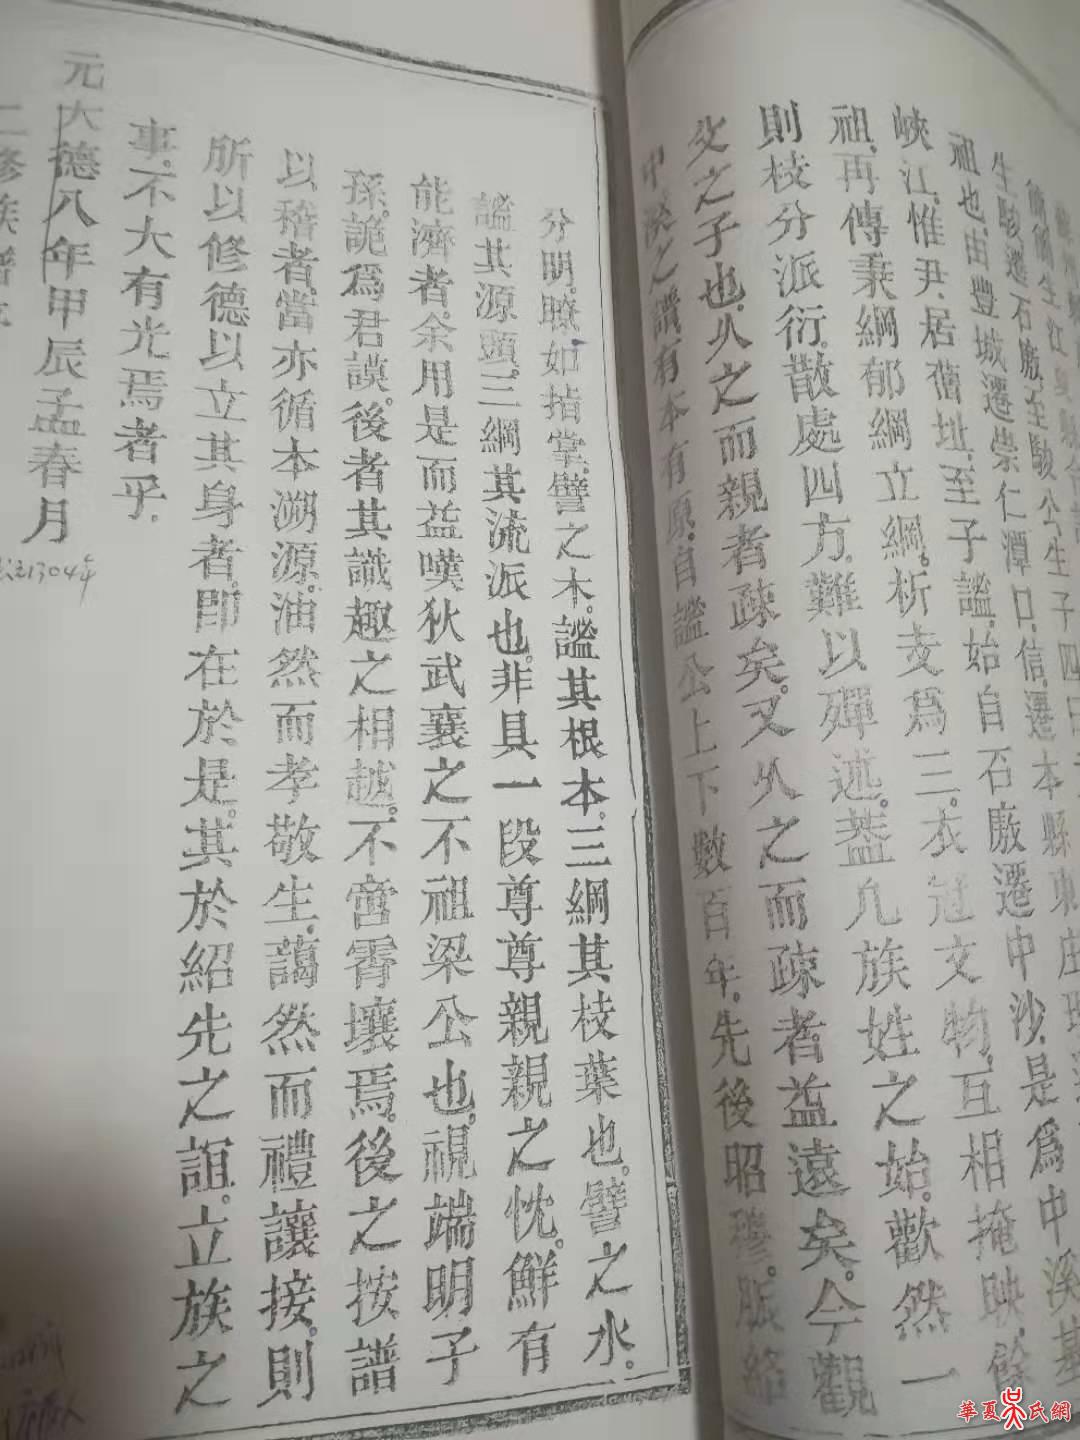 簡簡生江
生駿遷石廒至駿公生子四曰
祖也由豐城遷崇仁潭口信遷本縣東庄
峽江惟尹居舊址至子謐始自石廒遷中沙是為中溪基
祖再傳秉綱郁綱立綱析支為三衣冠文物互相掩映餘
則枝分派衍散處四方難以殫述葢凡族姓之始歡然一
父之子也久之而親者疎矣又久之而疎者益遠矣今觀
中溪之譜有本有原自謐公上下數百年先後昭穆脈絡
分明瞭如指掌譬之木謐其根本三綱其枝葉也譬之水
謐其源頭三綱其流派也非具一段尊尊親親之忱鮮有
能濟者余用是而益嘆狄武襄之不祖梁公也視端明子
孫詭為君謨後者其識趣之相越不啻霄壤焉後之按譜
以稽者當亦循本溯源油然而孝敬生藹然而禮讓接則
所以修德以立其身者即在於是其於紹先之誼立族之
事不大有光焉者乎
元大德八年甲辰孟春月
1304年
二修族譜
華夏吳氏網